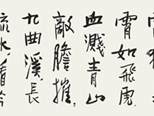 如飛虎
血濺青山
敵膽摧
九曲溪長
流水